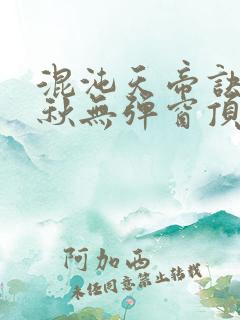 混沌天帝訣
秋無彈窗頂
阿加西
未经同意禁止转载